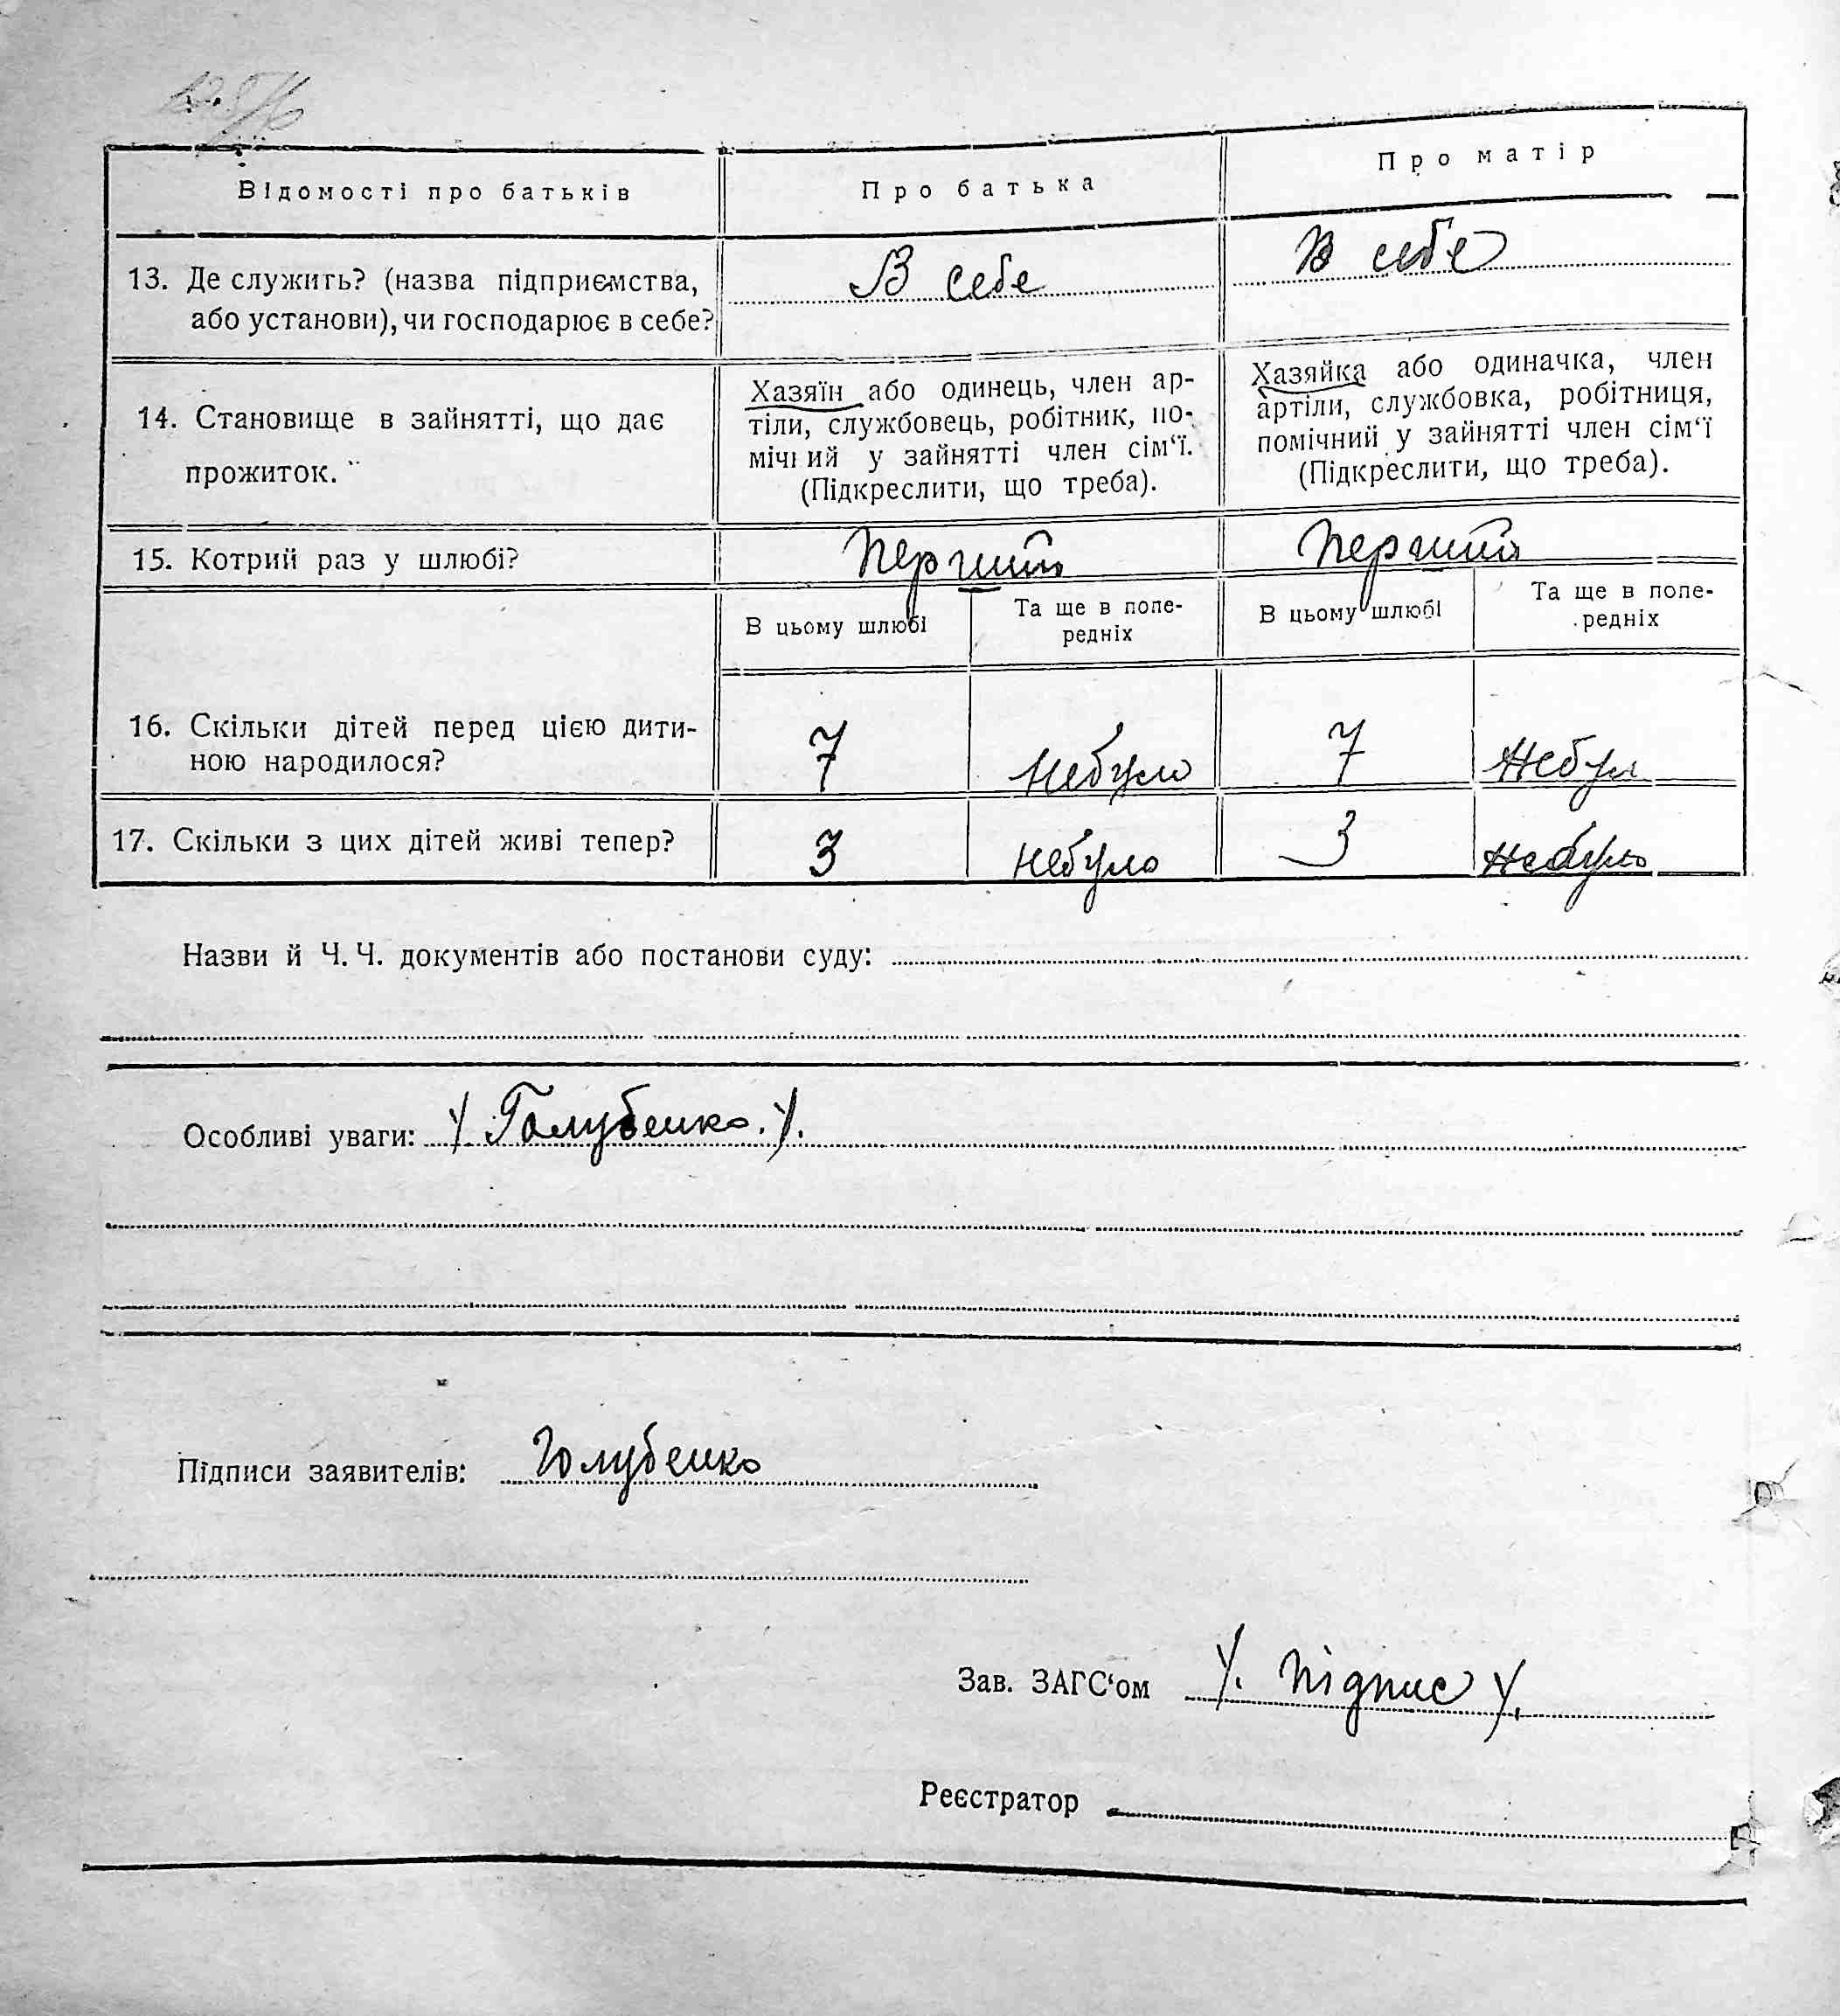 Відомості про батьків
Про батька
Про матір
13. Де служить? (назва підприємства,
або установи), чи господарює в себе?
В себе
В себе
14. Становище в зайнятті, що дає
прожиток.
Хазяїн або одинець, член ар-
тіли, службовець, робітник, по-
мічний у зайнятті член сім‘ї.
(Підкреслити, що треба).
Хазяйка або одиначка, член
артіли, службовка, робітниця,
помічний у зайнятті член сім‘ї
(Підкреслити, що треба).
15. Котрий раз у шлюбі?
Перший
Перший
В цьому шлюбі
Та ще в попе-
редніх
В цьому шлюбі
Та ще в попе-
редніх
16. Скільки дітей перед цією дити-
ною народилося?
7
небуло
7
небул
17. Скільки з цих дітей живі тепер?
3
небуло
3
небуло
Назви й Ч. Ч. документів або постанови суду:
Особливі уваги: / Голубенко. /.
Підписи заявителів: Голубенко
Зав. ЗАГС‘ом /. підпис /.
Реєстратор